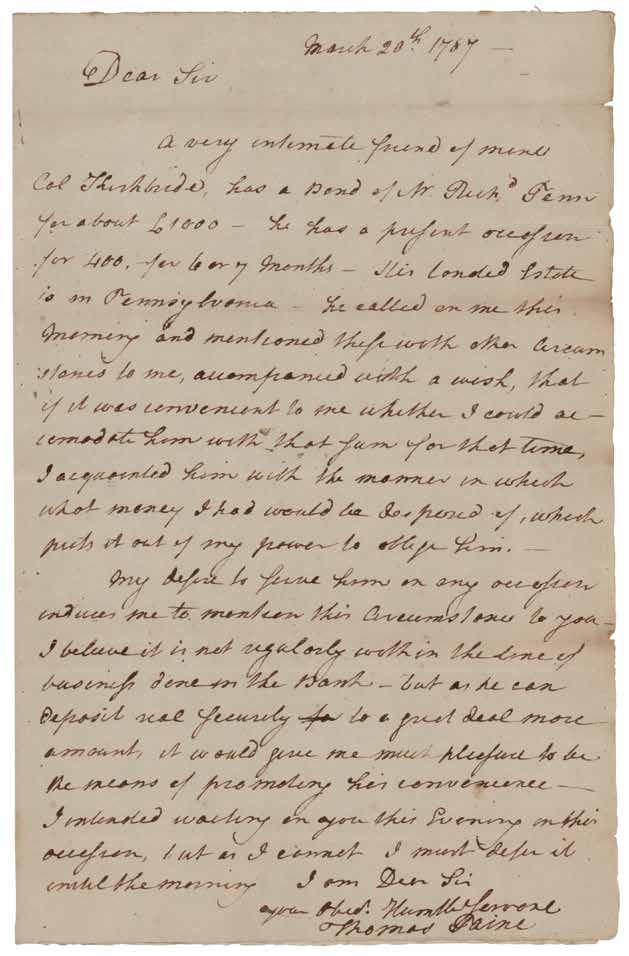 March 20th 1787 —
Dear Sir
A very intimate friend of mine
Col Kirkbride, has a Bond of Mr Richd Penn
for about £1000 — he has a present occasion
for 400. for 6 or 7 Months — His landed Estate
is in Pennsylvania — he called on me this
Morning and mentioned these with other Circum
stances to me, accompanied with a wish, that
if it was convenient to me whether I could ac-
comodate him with that sum for that time,
I acquainted him with the manner in which
what money I had would be disposed of, which
puts it out of my power to oblige him. —
My desire to serve him on any occasion
induces me to mention this Circumstance to you —
I believe it is not regularly within the line of
business done in the Bank — but as he can
deposit real security to a great deal more
amount, it would give me much pleasure to be
the means of promoting his convenience —
I intended waiting on you this Evening on this
occasion, but as I cannot I must defer it
until the morning I am Dear Sir
your Obedt. Humble Servant
Thomas Paine